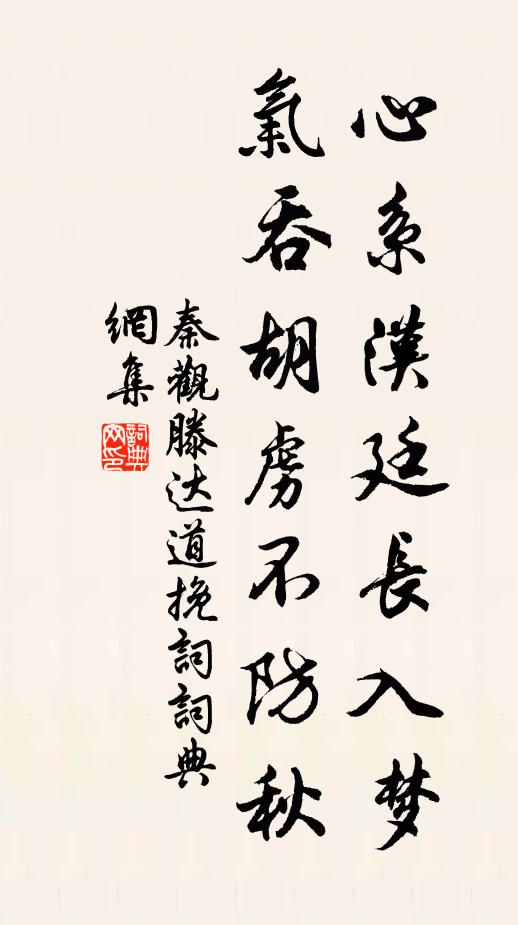 心系漢廷長入梦
氣吞胡虜不防秋
秦觀滕达道挽詞詞典
網集
詞典
网印